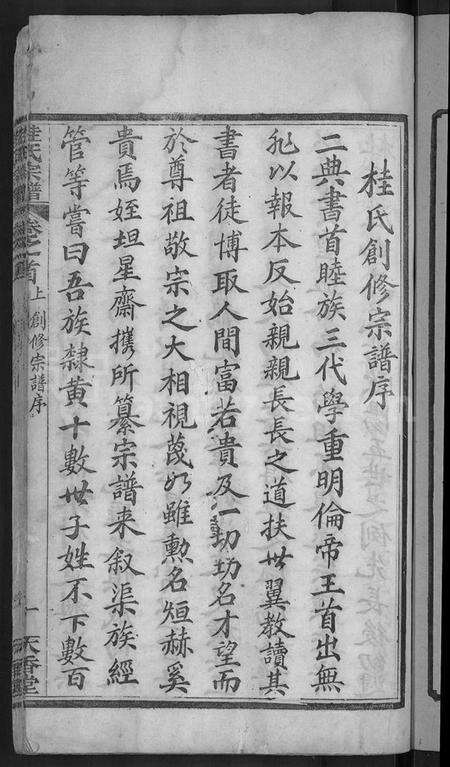 桂氏創修宗譜序
二典書首睦族三代學重明倫帝王首出無
非以報本反始親親長長之道扶世翼教讀其
書者徒博取人間富若貴及一切功名才望而
於尊祖敬宗之大相視蔑如雖勳名烜赫奚
貴焉姪坦星齋攜所纂宗譜来叙渠族經
管等嘗曰吾族隸黄十數世子姓不下數百
桂氏宗譜
卷之首上
創修宗譜序
一
天香堂